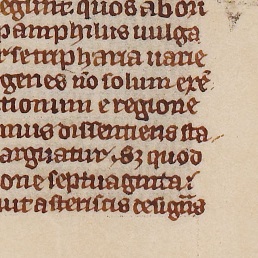 eglint. quos ab ori
pamphilus uulga
r setripharia uarie
genes uo solum exe
tionum e regione
muis dissentiens sta
arguatur. sz quod
one septuaginta:
uit asteriscis designās